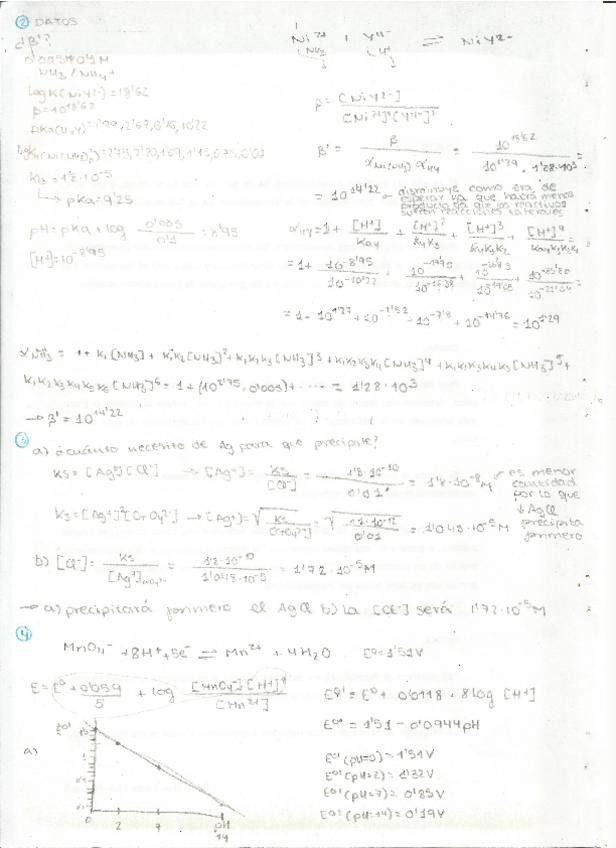 ② DATOS
¿β'?
NH3 / NH4+
log K(NiY2-) = 18'62
β = 10^18'62
pKa(H4Y) = 1'99, 2'67, 6'16, 10'22
Kb = 1'8·10^-5
→ pKa = 9'25
pH = pKa + log 0'005/0'1 = 8'95
[H+] = 10^-8'95
Ni2+ + Y4- ⇌ NiY2-
β = [NiY2-] / [Ni2+]'[Y4-]'
β' = β / αNi(NH3) αH4Y = 10^18'62 / 10^1'29 · 1'28·10^3 =
= 10^14'22 → disminuye como era de
esperar ya que habrá menos
producto ya que los reactivos
sufren reacciones laterales
αH4Y = 1 + [H+]/Ka4 + [H+]^2/K4K3 + [H+]^3/K4K3K2 + [H+]^4/Ka4K3K2K1 =
= 1 + 10^-8'95/10^-10'22
= 10^1'29
αNH3 = 1 + K1[NH3] + K1K2[NH3]^2 + K1K2K3[NH3]^3 + K1K2K3K4[NH3]^4 + K1K2K3K4K5[NH3]^5 +
K1K2K3K4K5K6[NH3]^6 = 1 + (10^2'75 · 0'005) + ···· = 1'28·10^3
→ β' = 10^14'22
③ a) ¿cuánto necesito de Ag para que precipite?
Ks = [Ag+][Cl-] → [Ag+] = Ks/[Cl-] = 1'8·10^-10/0'01 = 1'8·10^-8 M
es menor
cantidad
por lo que
↓AgCl
precipita
primero
Ks = [Ag+]^2[CrO4 2-] → [Ag+] = √Ks/[CrO4 2-] = √1'1·10^-12/0'01 = 1'048·10^-5 M
b) [Cl-] = Ks/[Ag+] = 1'8·10^-10/1'048·10^-5 = 1'72·10^-5 M
→ a) precipitará primero el AgCl b) La [Cl-] será 1'72·10^-5 M
④
MnO4- + 8H+ + 5e- ⇌ Mn2+ + 4H2O E0 = 1'51V
E = E0 + 0'059/5 + log [MnO4-][H+]^8/[Mn2+]
E0' = E0 + 0'0118 · 8 log [H+]
E0' = 1'51 - 0'0944pH
a)
E0'
0 2 7 pH 14
E0' (pH=0) = 1'51V
E0' (pH=2) = 1'32V
E0' (pH=7) = 0'85V
E0' (pH=14) = 0'19V